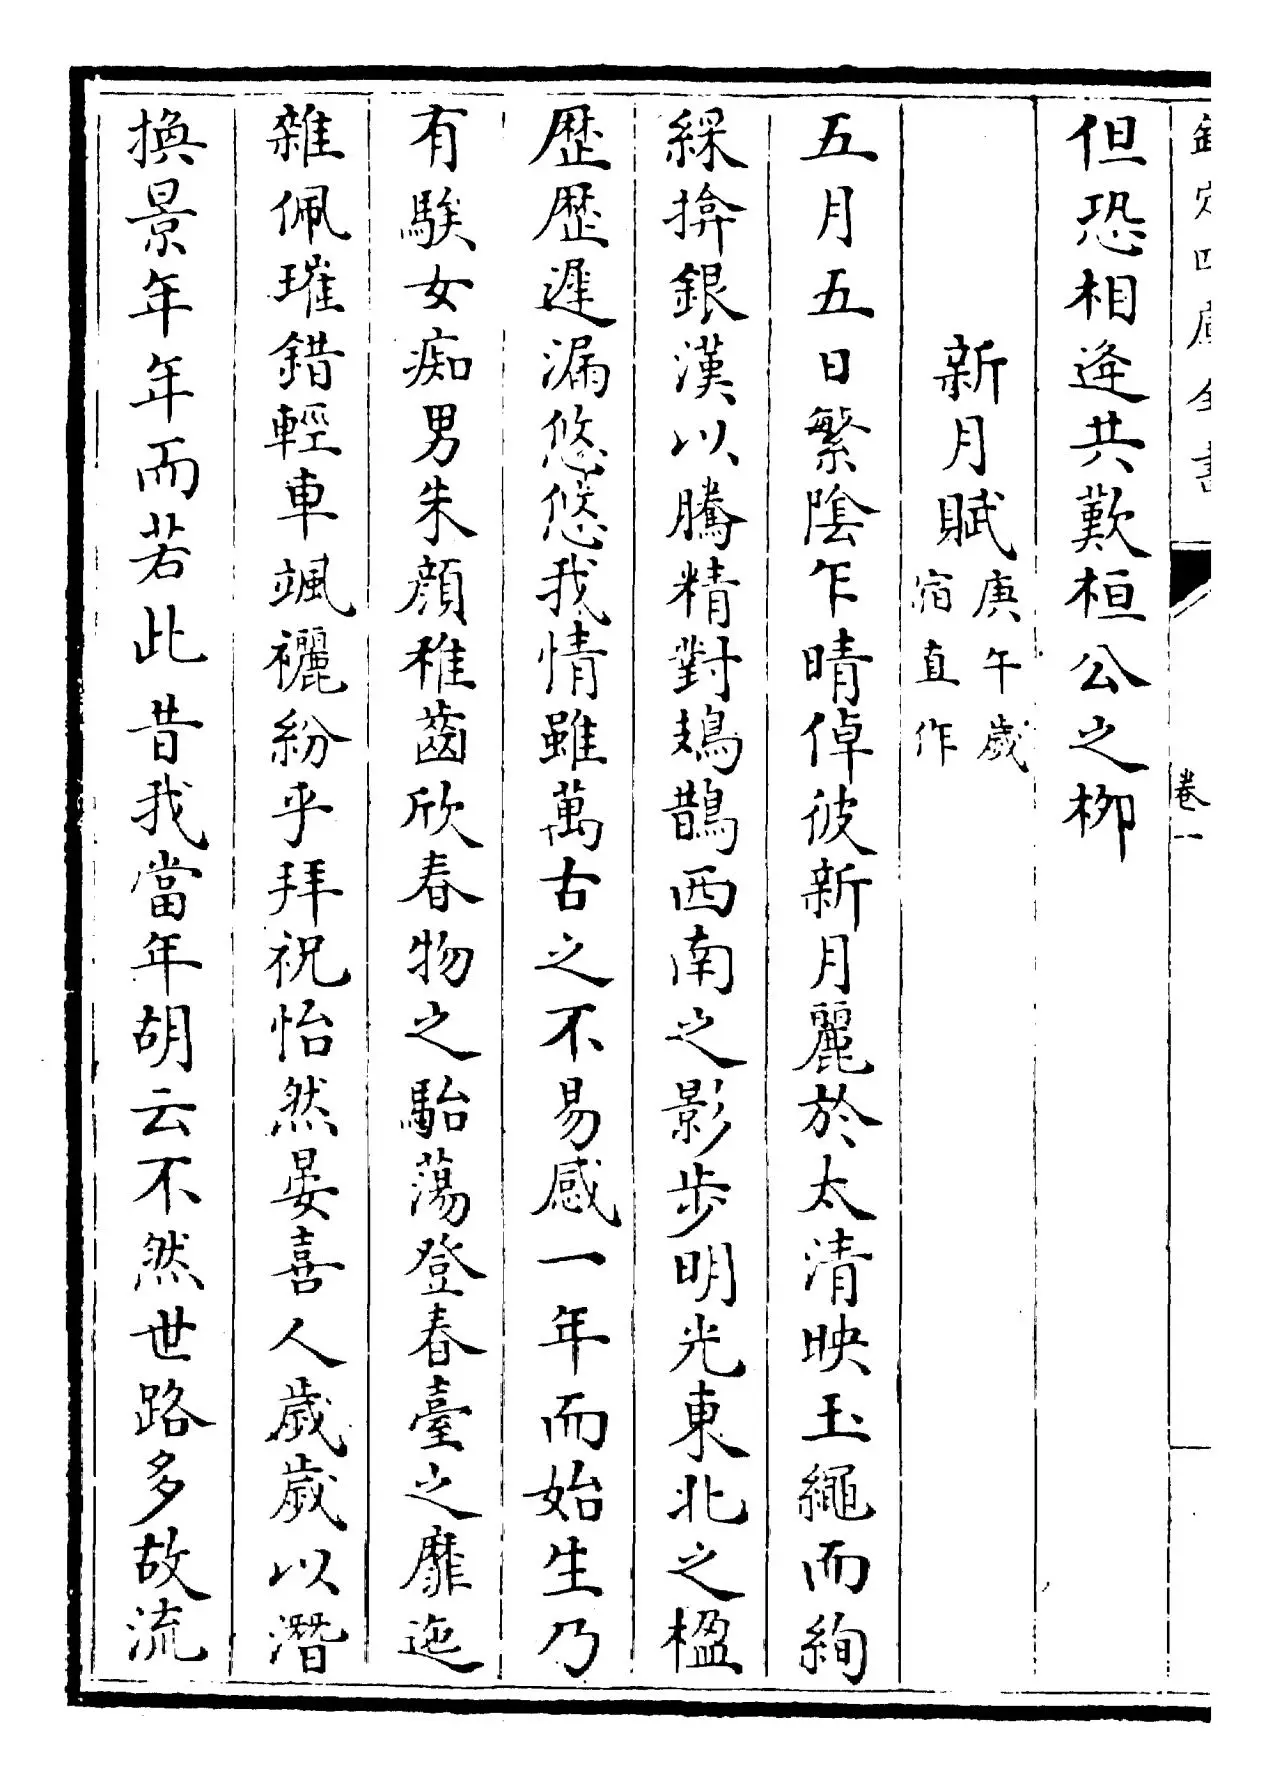 欽定四庫全書
卷一
但恐相逄共歎桓公之栁
新月賦庚午歲宿直作
五月五日繁陰乍晴倬彼新月麗於太清映玉繩而絢
綵揜銀漢以騰精對鳷鵲西南之影步明光東北之楹
歴歴遲漏悠悠我情雖萬古之不易感一年而始生乃
有騃女痴男朱顔稚齒欣春物之駘蕩登春臺之靡迤
雜佩璀錯輕車颯纚紛乎拜祝怡然晏喜人歲歲以潛
換景年年而若此昔我當年胡云不然世路多故流